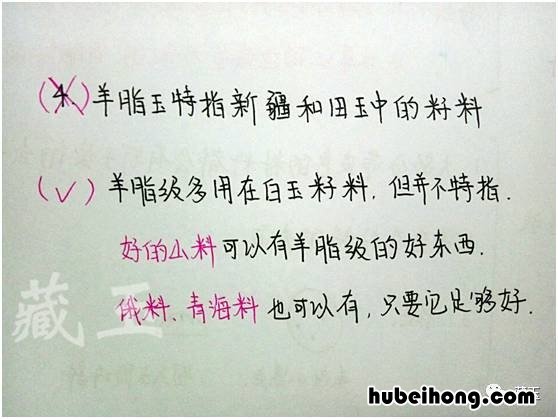 (4.) 羊脂玉特指新疆和田玉中的籽料
(✓) 羊脂级多用在白玉籽料，但并不特指．
好的山料可以有羊脂级的好东西．
俄料、青海料也可以有，只要它足够好．
藏玉
藏玉
hubeihong.com